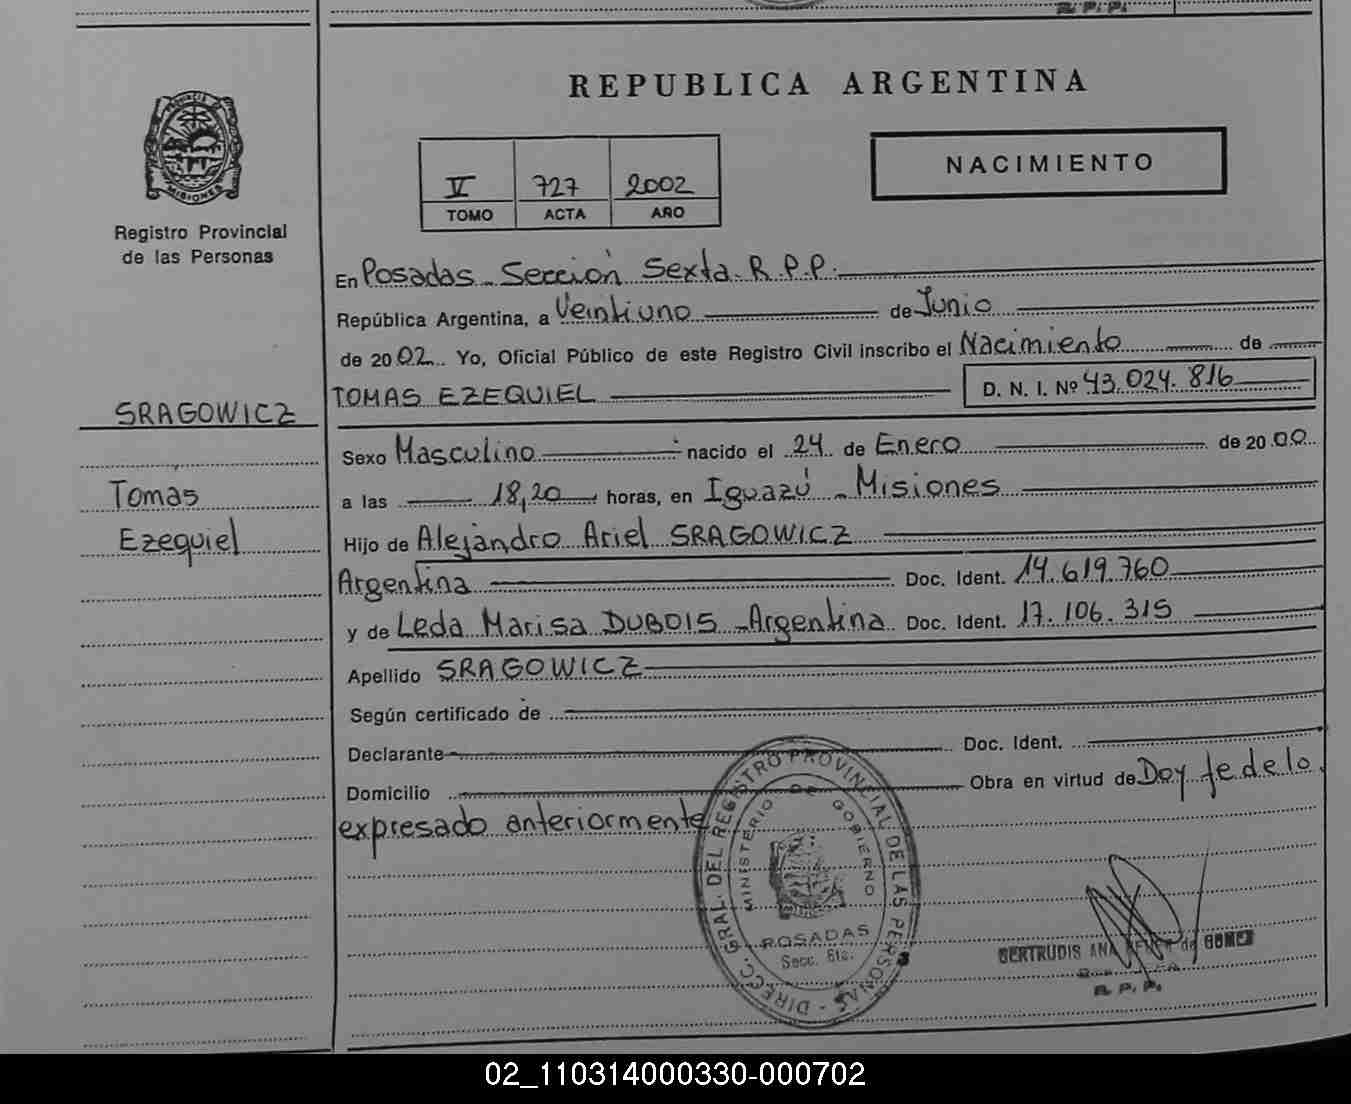 R. P. P.
REPUBLICA ARGENTINA
PROVINCIA DE
MISIONES
Registro Provincial
de las Personas
V 727 2002
TOMO ACTA AÑO
NACIMIENTO
En Posadas - Sección Sexta R.P.P.
República Argentina, a Veintiuno de Junio
de 2002 Yo, Oficial Público de este Registro Civil inscribo el Nacimiento de
TOMAS EZEQUIEL D. N. I. Nº 43.024.816
SRAGOWICZ
Tomas
Ezequiel
Sexo Masculino nacido el 24 de Enero de 2000
a las 18,20 horas, en Iguazú - Misiones
Hijo de Alejandro Ariel SRAGOWICZ
Argentina Doc. Ident. 14.619.760
y de Leda Marisa DUBOIS - Argentina Doc. Ident. 17.106.315
Apellido SRAGOWICZ
Según certificado de
Declarante Doc. Ident.
Domicilio Obra en virtud de Doy fe de lo
expresado anteriormente
DIRECC. GRAL. DEL REGISTRO PROVINCIAL DE LAS PERSONAS
MINISTERIO DE GOBIERNO
POSADAS
Secc. 6ta.
GERTRUDIS ANA de GOMEZ
R. P. P.
02_110314000330-000702